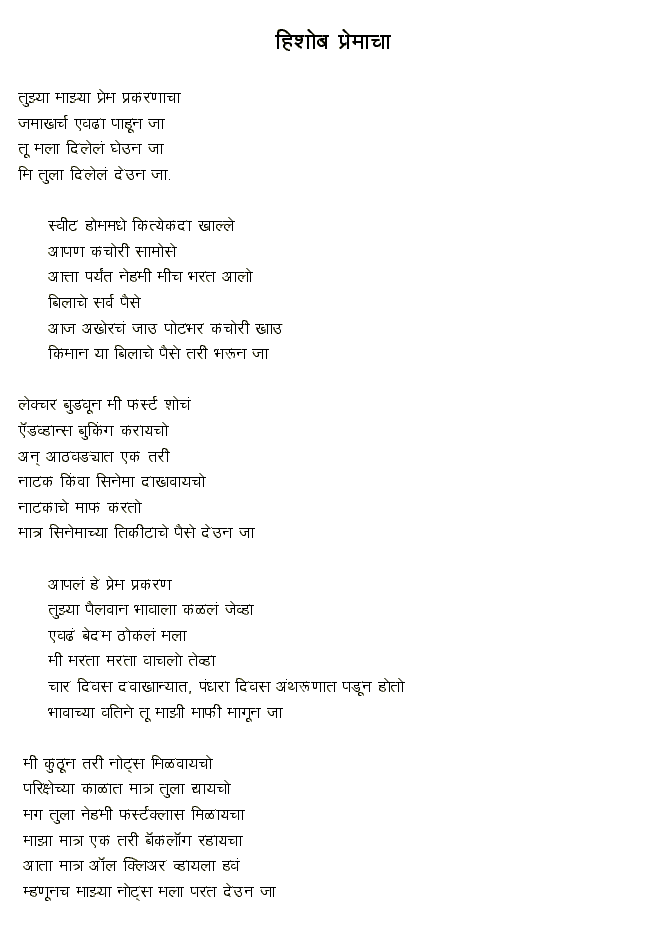 हिशोब प्रेमाचा
तुझ्या माझ्या प्रेम प्रकरणाचा
जमाखर्च एवढा पाडून जा
तू मला दिलेलं घेउन जा
मि तुला दिलेलं देउन जा.
स्वीट होममधे कित्येकदा खाल्ले
आपण कचोरी सामोसे
आत्ता पर्यंत नेहमी मीच भरत आलो
बिलाचे सर्व पैसे
आज अखेरचं जाउ पोटभर कचोरी खाउ
किमान या बिलाचे पैसे तरी भरून जा
लेक्चर बुडवून मी फर्स्ट शोचं
ऍडव्हान्स बुकिंग करायचो
अन् आठवड्यात एक तरी
नाटक किंवा सिनेमा दाखवायचो
नाटकाचे माफ करतो
मात्र सिनेमाच्या तिकीटाचे पैसे देउन जा
आपलं हे प्रेम प्रकरण
तुझ्या पैलवान भावाला कळलं जेव्हा
एवढं बेदम ठोकलं मला
मी मरता मरता वाचलो तेव्हा
चार दिवस दवाखान्यात, पंधरा दिवस अंथरूणात पडून होतो
भावाच्या वतिने तू माझी माफी मागून जा
मी कुठून तरी नोट्स मिळवायचो
परिक्षेच्या काळात मात्र तुला द्यायचो
मग तुला नेहमी फर्स्टक्लास मिळायचा
माझा मात्र एक तरी बॅकलॉग रहायचा
आता मात्र ऑल क्लिअर व्हायला हवं
म्हणूनच माझ्या नोट्स मला परत देउन जा